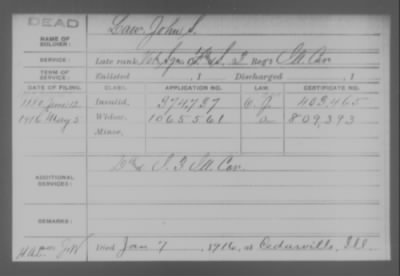 DEAD
NAME OF SOLDIER: Law, John S.
SERVICE: Late rank, Regt Ill. Cav.
TERM OF SERVICE: Enlisted , 1 Discharged , 1
DATE OF FILING. CLASS. APPLICATION NO. LAW. CERTIFICATE NO.
1880 June 12 Invalid, 374737 403,465
1916 May 5 Widow, 1065561 809,393
Minor,
ADDITIONAL SERVICES: Ill. Cav.
REMARKS:
Died Jan 7, 1916, at Cedarville, Ill.